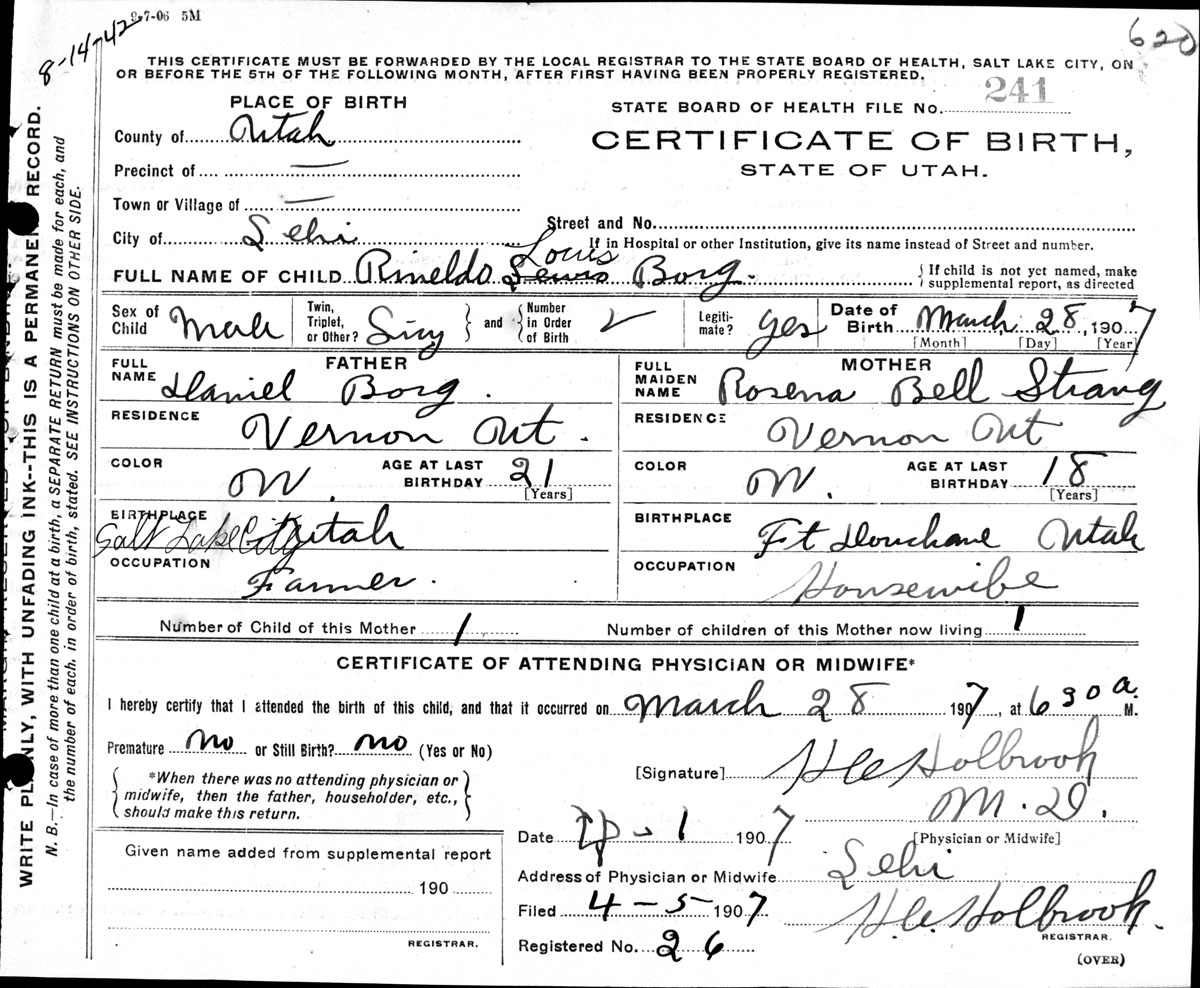 9-7-06 5M
8-14-42
620
THIS CERTIFICATE MUST BE FORWARDED BY THE LOCAL REGISTRAR TO THE STATE BOARD OF HEALTH, SALT LAKE CITY, ON
OR BEFORE THE 5TH OF THE FOLLOWING MONTH, AFTER FIRST HAVING BEEN PROPERLY REGISTERED.
PLACE OF BIRTH
STATE BOARD OF HEALTH FILE No. 241
County of Utah
CERTIFICATE OF BIRTH,
STATE OF UTAH.
Precinct of —
Town or Village of —
Street and No.
City of Lehi
If in Hospital or other Institution, give its name instead of Street and number.
Louis
FULL NAME OF CHILD Rineldo Lewis Borg.
{ If child is not yet named, make
supplemental report, as directed
Sex of Child Male
Twin, Triplet, or Other? Sing } and { Number in Order of Birth 2
Legiti-mate? yes
Date of Birth March 28, 1907
[Month] [Day] [Year]
FATHER
FULL NAME Daniel Borg.
RESIDENCE Vernon Ut.
COLOR W. AGE AT LAST BIRTHDAY 21
[Years]
BIRTHPLACE Salt Lake City Utah
OCCUPATION Farmer.
MOTHER
FULL MAIDEN NAME Rosena Bell Strang
RESIDENCE Vernon Ut
COLOR W. AGE AT LAST BIRTHDAY 18
[Years]
BIRTHPLACE Ft Douchane Utah
OCCUPATION Housewibe
Number of Child of this Mother 1 Number of children of this Mother now living 1
CERTIFICATE OF ATTENDING PHYSICIAN OR MIDWIFE*
I hereby certify that I attended the birth of this child, and that it occurred on March 28 1907, at 6 30 a. M.
Premature No or Still Birth? No (Yes or No)
{ *When there was no attending physician or
midwife, then the father, householder, etc.,
should make this return. }
[Signature] H C Holbrook
M.D.
[Physician or Midwife]
Date Ap - 1 1907
Given name added from supplemental report
190
REGISTRAR.
Address of Physician or Midwife Lehi
Filed 4-5 1907 H.C. Holbrook.
REGISTRAR.
Registered No. 26
(OVER)
WRITE PLAINLY, WITH UNFADING INK--THIS IS A PERMANENT RECORD.
N. B.—In case of more than one child at a birth, a SEPARATE RETURN must be made for each, and
the number of each, in order of birth, stated. SEE INSTRUCTIONS ON OTHER SIDE.